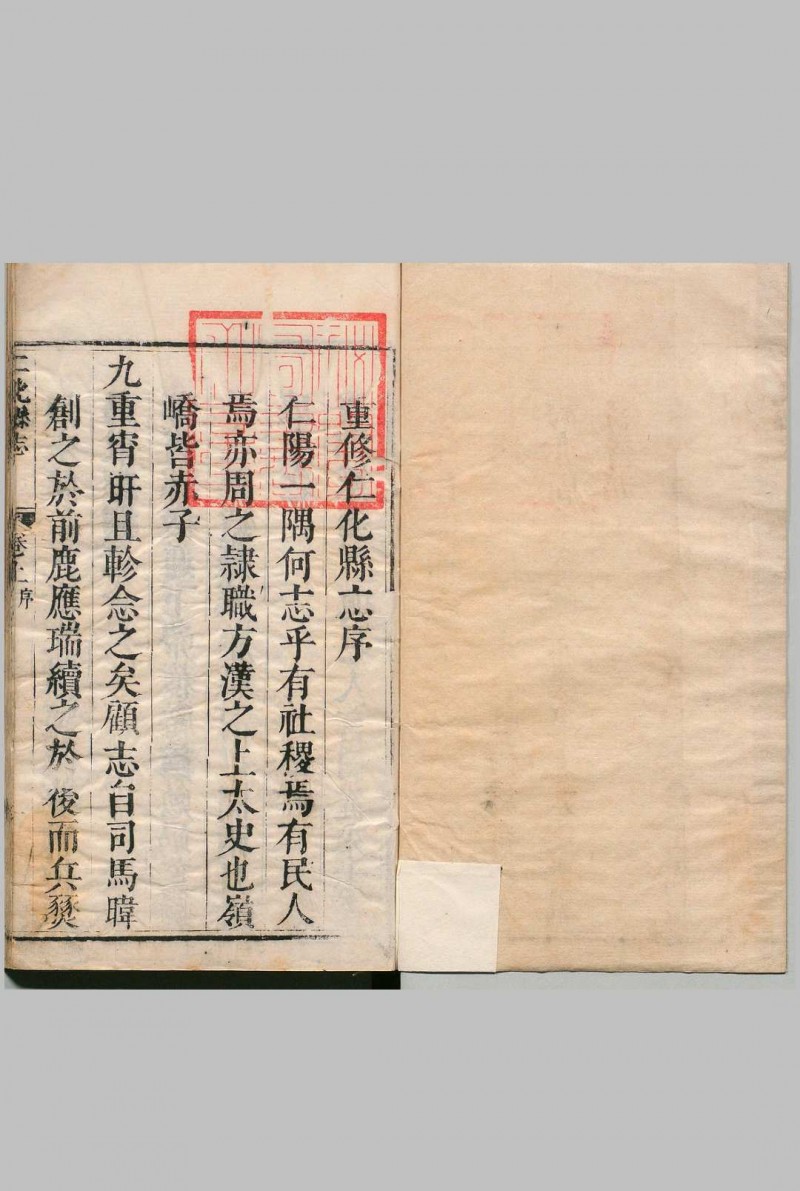 重修仁化縣志序
仁陽一隅何志乎有社稷焉有民人
焉亦周之隷職方漢之上太史也嶺
嶠皆赤子
九重宵旰且軫念之矣顧志自司馬暐
創之於前鹿應瑞續之於後而兵燹
仁化縣志
卷之上序